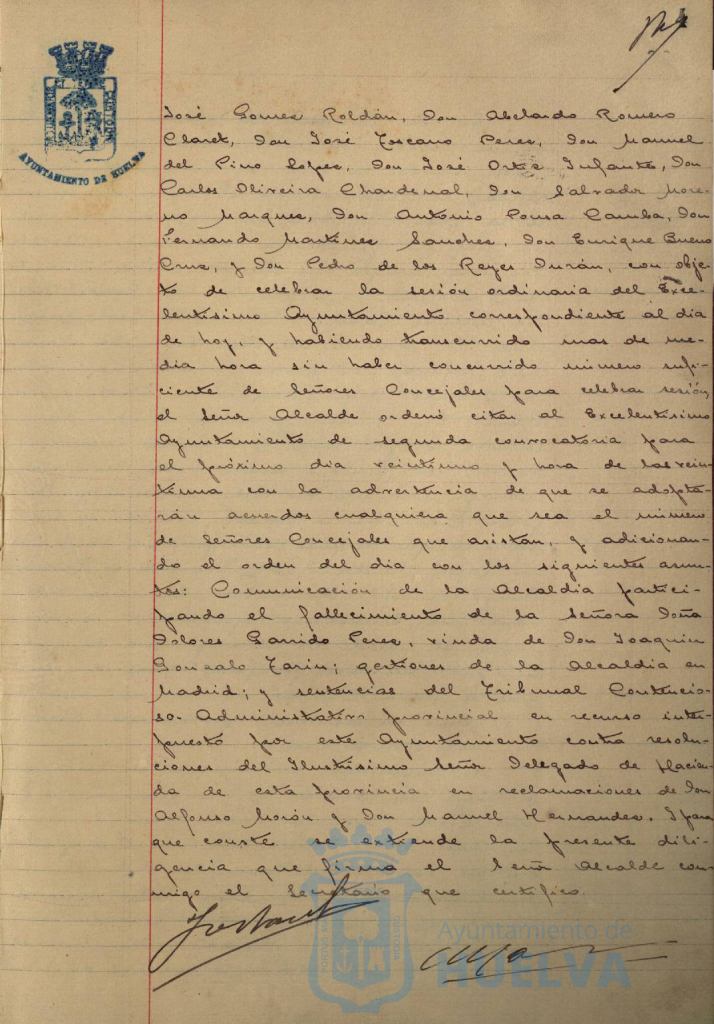 PORTUS MARIS ET TERRE CUSTODIA
AYUNTAMIENTO DE HUELVA
José Gomez Roldán, Don Abelardo Romero
Claret, Don José Toscano Perez, Don Manuel
del Pino Lopez, Don José Ortiz Infante, Don
Carlos Oliveira Chardenal, Don Salvador More-
no Marquez, Don António Pousa Camba, Don
Fernando Martinez Sanchez, Don Enrique Bueno
Cruz, y Don Pedro de los Reyes Durán, con obje-
to de celebrar la sesión ordinaria del Exce-
lentísimo Ayuntamiento correspondiente al dia
de hoy, y habiendo transcurrido mas de me-
dia hora sin haber concurrido número sufi-
ciente de Señores Concejales para celebrar sesión,
el Señor Alcalde ordenó citar al Excelentísimo
Ayuntamiento de segunda convocatoria para
el próximo dia veintiuno y hora de las vein-
tiuna con la advertencia de que se adopta-
rán acuerdos cualquiera que sea el número
de Señores Concejales que asistan, y adicionan-
do el orden del dia con los siguientes asun-
tos: Comunicación de la Alcaldia partici-
pando el fallecimiento de la Señora Doña
Dolores Garrido Perez, viuda de Don Joaquin
Gonzalo Tarin; gestiones de la Alcaldia en
Madrid; y sentencias del Tribunal Contencio-
so-Administrativo provincial en recurso inter-
puesto por este Ayuntamiento contra resolu-
ciones del Ilustrísimo Señor Delegado de Hacien-
da de esta provincia en reclamaciones de Don
Alfonso Morón y Don Manuel Hernandez. Y para
que conste se extiende la presente dili-
gencia que firma el Señor Alcalde con-
migo el Secretario que certifico.
Ayuntamiento de
HUELVA